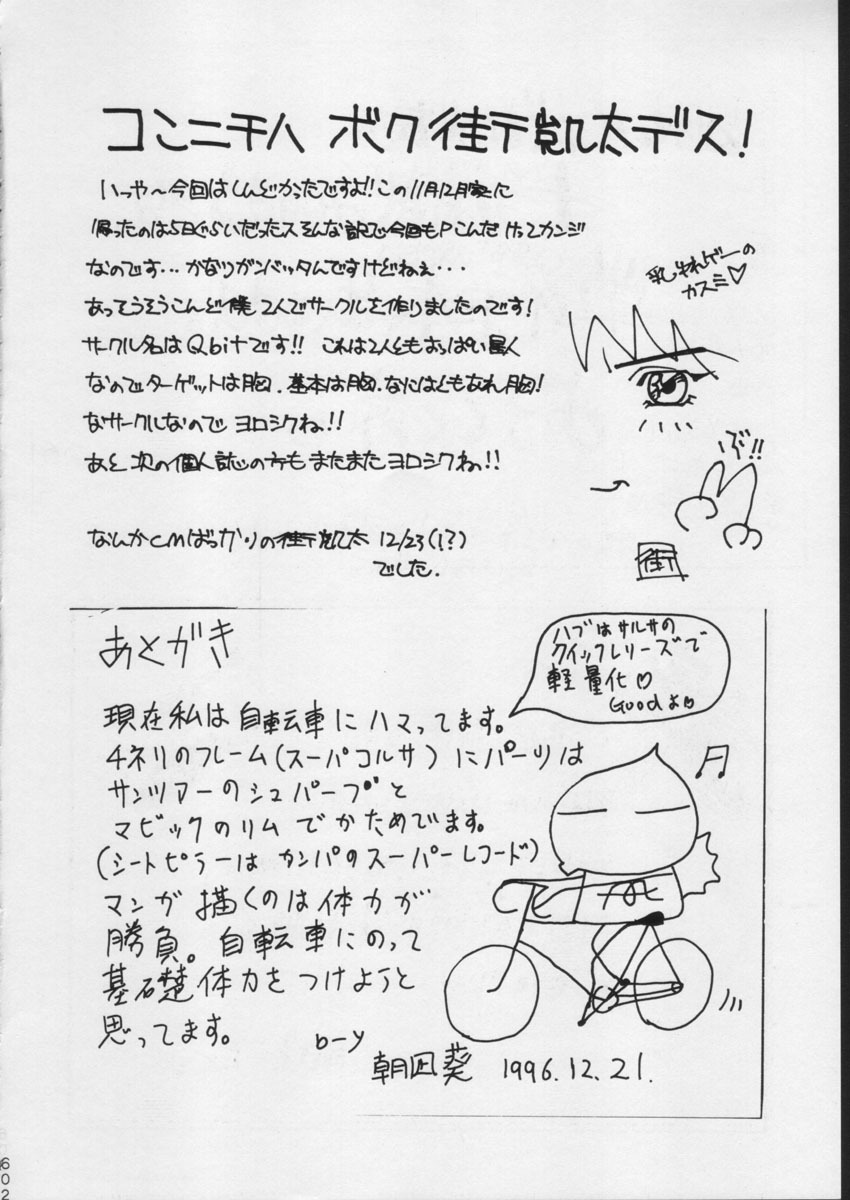 コンニチハ ボク 街下凱太デス!
いっや~今回はしんどかったですよ!!この11月12月家に
帰ったのは5日ぐらいだったスそんな訳で今回もPこんだけってカンジ
なのです…かなりガンバッタんですけどねぇ・・・
あってうそうそうこんど僕2人でサークルを作りましたのです!
サークル名はQbitです!! これは2人ともおっぱい星人
なのでターゲットは胸.基本は胸.なにはともあれ胸!
なサークルなのでヨロシクね!!
あと次の個人誌の方もまたまたヨロシクねっ!!
なんかCMばっかりの街下凱太 12/23(!?)
でした.
乳ゆれゲーの
カスミ♡
ぶ!!
街下
あとがき
ハブはサルサの
クイックレリーズで
軽量化♡
Goodよ♡
現在私は自転車にハマってます。
チネリのフレーム(スーパコルサ)にパーツは
サンツアーのシュパーブと
マビックのリムでかためてます。
(シートピラーはカンパのスーパーレコード)
マンガ描くのは体力が
勝負。自転車にのって
基礎体力をつけようと
思ってます。
b-y
朝凪葵 1996.12.21.
602